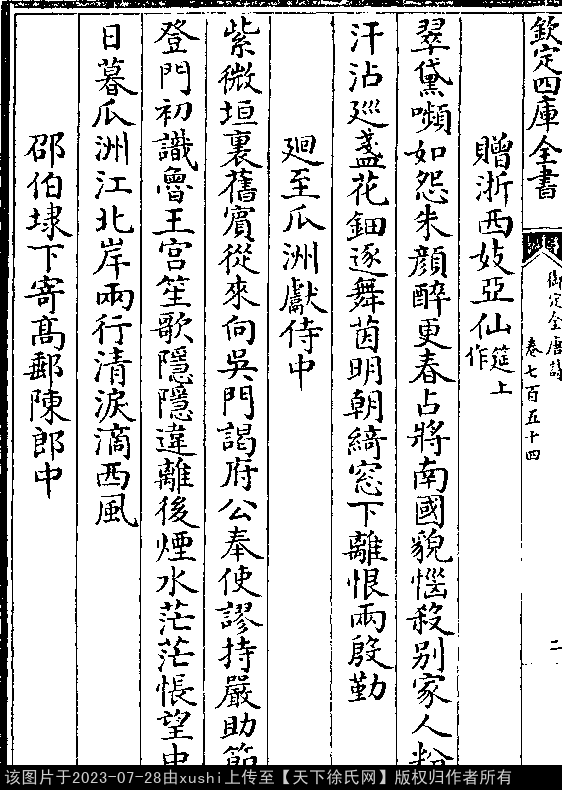 欽定四庫全書
御定全唐詩
卷七百五十四
二
贈浙西妓亞仙筵上作
翠黛嚬如怨朱顔醉更春占將南國貌惱殺别家人粉
汗沾廵盞花鈿逐舞茵明朝綺窓下離恨兩殷勤
廻至瓜洲獻侍中
紫微垣裏舊賓從來向吳門謁府公奉使謬持嚴助節
登門初識魯王宫笙歌隱隱違離後煙水茫茫悵望中
日暮瓜洲江北岸兩行清淚滴西風
邵伯埭下寄髙郵陳郎中
该图片于2023-07-28由xushi上传至【天下徐氏网】版权归作者所有